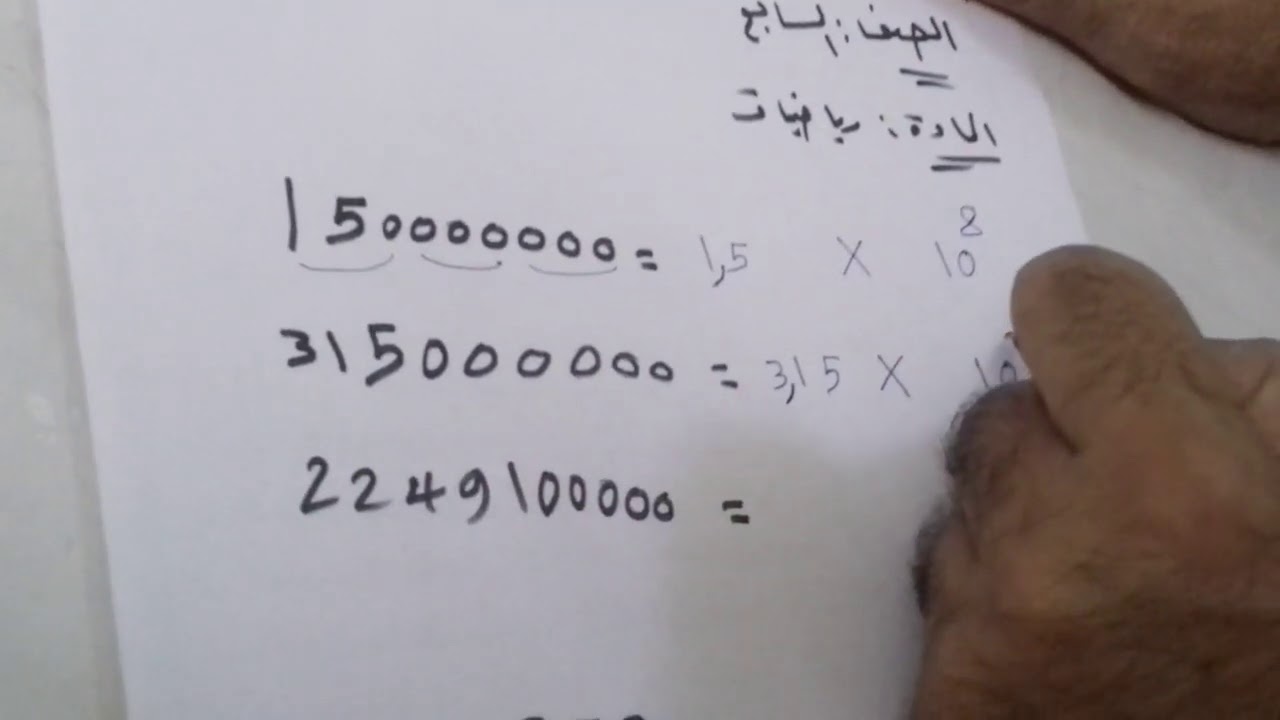 الصف: السابع
المادة: رياضيات
150000000 = 1,5 X 10⁸
315000000 = 3,15 X 10
2249100000 =